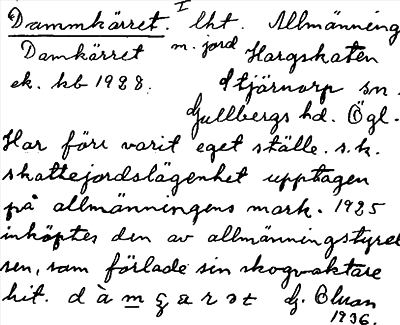 Dammkärret. I lht. Allmänning
Damkärret m. jord Hargskaten
ek. kb 1928. Stjärnorp sn.
Gullbergs hd. Ögl.
Har förr varit eget ställe. s.k.
skattejordslägenhet upptagen
på allmänningens mark. 1925
inköptes den av allmänningstyrel
sen, som förlade sin skogvaktare
hit.
G. Olson
1936.